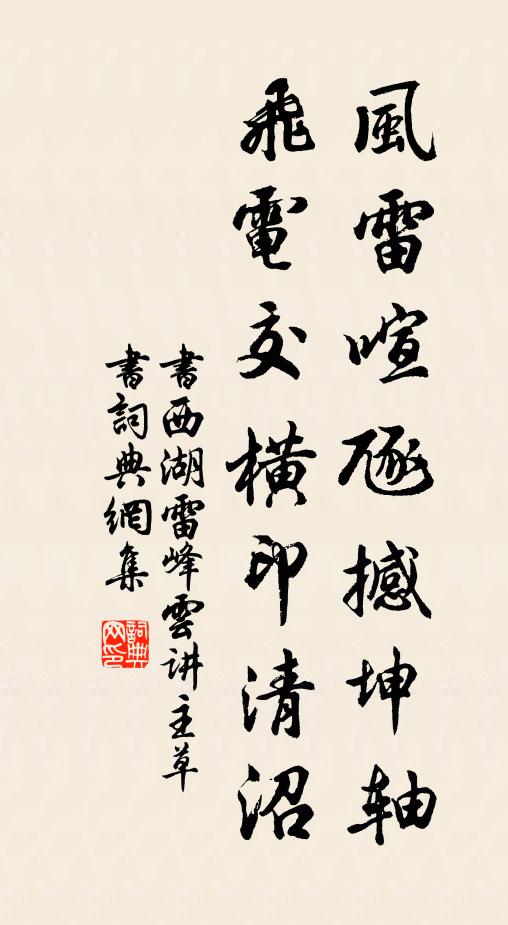 風雷喧豗撼坤軸
飛電交橫印清沼
書西湖雷峰雲讲主草
書詞典網集
詞典
网印